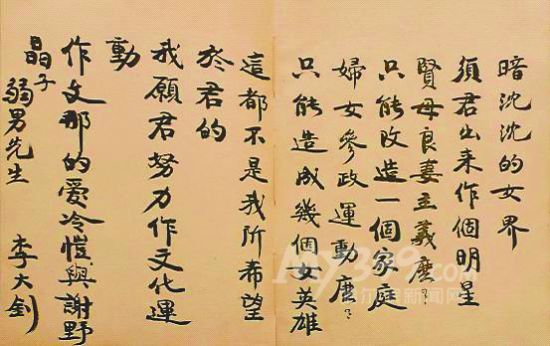 暗沈沈的女界
須君出来作個明星
賢母良妻主義麽？
只能改造一個家庭
婦女參政運動麽？
只能造成幾個女英雄
這都不是我所希望
於君的
我願君努力作文化運
動
作文那的愛冷愷與謝野
晶子
弱男先生
李大釗
My399.com
尔滨新闻网